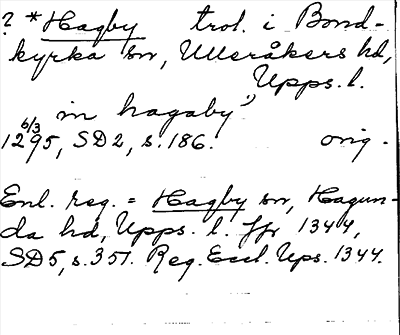 ? * Hagby trol. i Bond-
kyrka sn, Ulleråkers hd,
Upps. l.
in hagaby,
6/3
1295, SD2, s. 186. orig.
Enl. reg. = Hagby sn, Hagun-
da hd, Upps. l. Jfr 1344,
SD5, s. 351. Reg. Eccl. Ups. 1344.